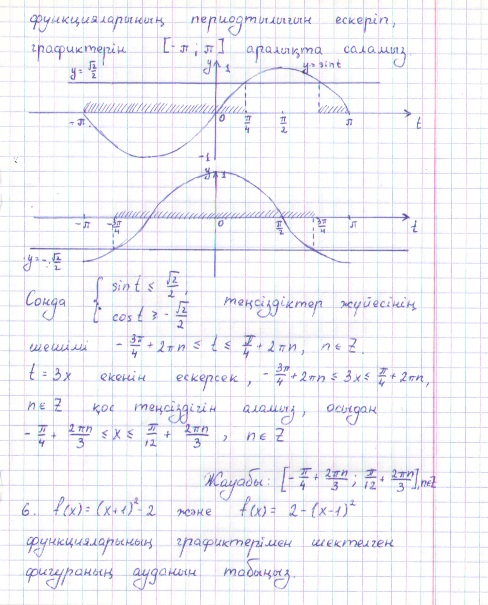 функцияларының периодтылығын ескеріп,
графиктерін [-π; π] аралықта саламыз.
y=√2/2 y 1 y=sint
-π 0 π/4 π/2 π t
-1
y 1
-π -3π/4 0 π/2 3π/4 π t
y=-√2/2
Сонда { sint ≤ √2/2, cost ≥ -√2/2 теңсіздіктер жүйесінің
шешімі -3π/4 + 2πn ≤ t ≤ π/4 + 2πn, n∈Z.
t = 3x екенін ескерсек, -3π/4 + 2πn ≤ 3x ≤ π/4 + 2πn,
n∈Z қос теңсіздігін аламыз, осыдан
-π/4 + 2πn/3 ≤ x ≤ π/12 + 2πn/3, n∈Z
Жауабы: [-π/4 + 2πn/3; π/12 + 2πn/3], n∈Z
6. f(x) = (x+1)²-2 және f(x) = 2-(x-1)²
функцияларының графиктерімен шектелген
фигураның ауданын табыңыз.